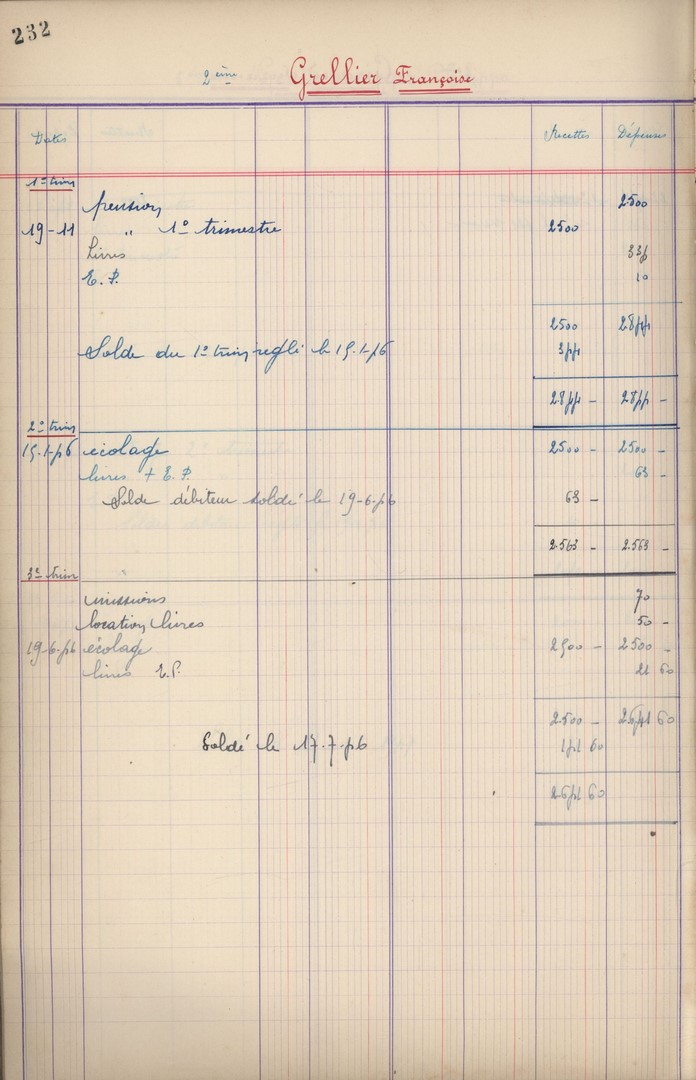 232
2ème Grellier Françoise
Dates Recettes Dépenses
1er trim
pension 2500
19-11 " 1er trimestre 2500
Livres 345
E.P. 10
2500 2855
Solde du 1er trim réglé le 15.1.56 355
2855 - 2855 -
2e trim
15.1.56 écolage 2500 - 2500 -
livres + E.P. 63 -
Solde débiteur soldé le 19-6-56 63 -
2.563 - 2.563 -
3e trim
missions 70
location livres 50 -
19-6-56 écolage 2500 - 2500 -
livres E.P. 31 60
2.500 - 2651 60
Soldé le 17.7.56 151 60
2651 60